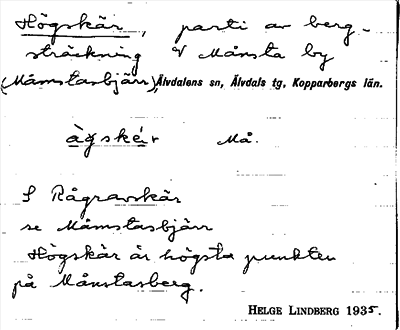 Högskär, parti av berg-
sträckning V Månsta by
(Måmstasbjärr), Älvdalens sn, Älvdals tg, Kopparbergs län.
Må.
S Rågravskär
se Måmstasbjärr
Högskär är högsta punkten
på Månstasberg.
HELGE LINDBERG 1935.